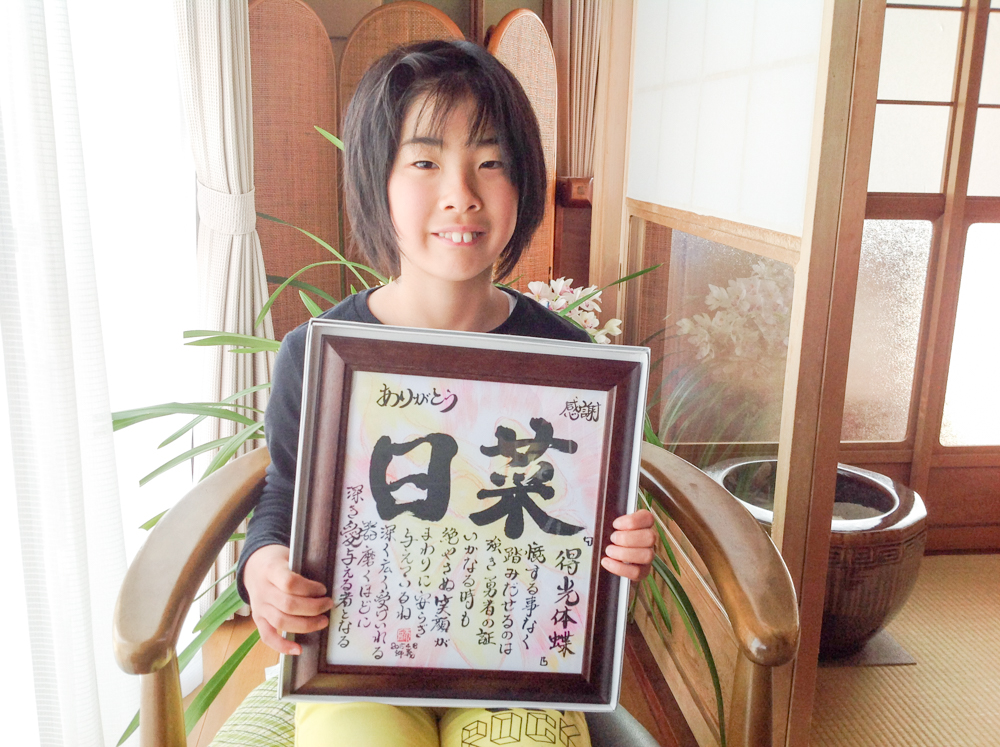 ありがとう
感謝
日菜
「得光体蝶」
する事なく
踏みだせるのは
強き勇者の証
いかなる時も
絶やさぬ笑顔が
まわりに安らぎ
深く広く受けいれる
器磨くほどに
深き愛与える者となる